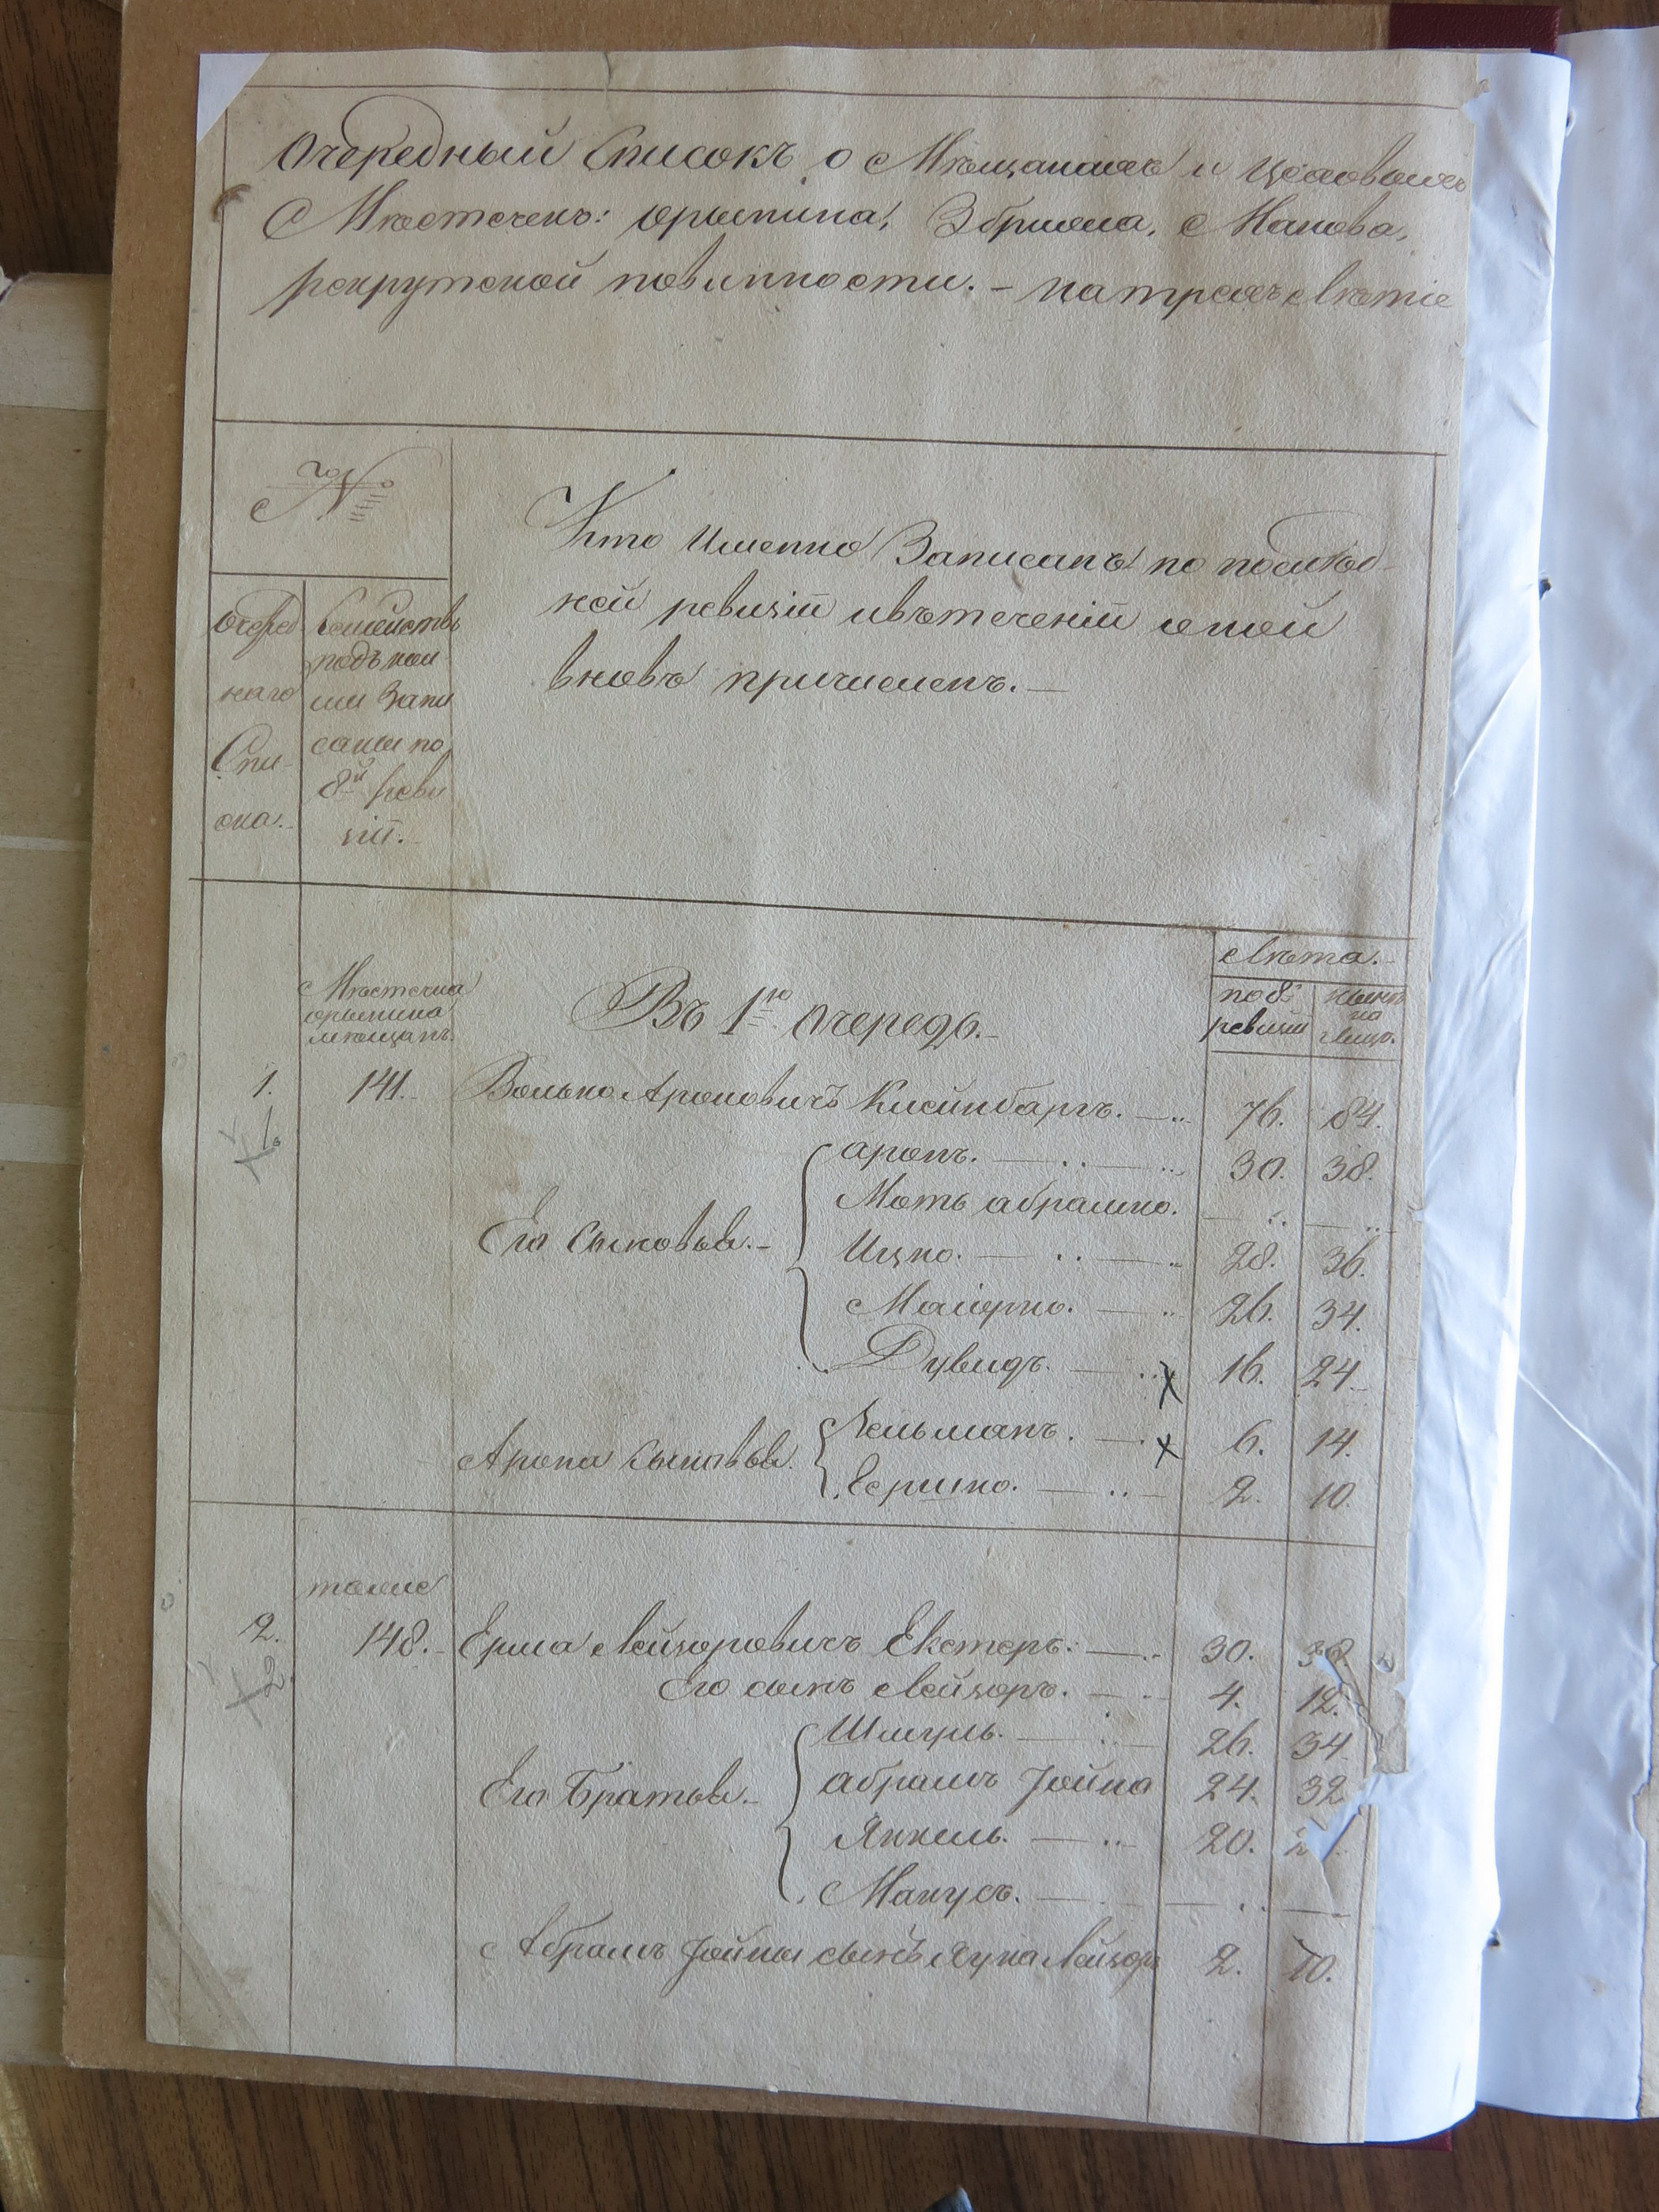 Очередный Списокъ о Мѣщанахъ и цеховыхъ
Мѣстечекъ: орынина, Збрижа, Макова,
рекрутской повинности. - на трехъ Лѣтіе
№
Очеред-
наго
Спи-
ска.
Семействъ
подъ кои-
ми Запи
саны по
8й реви
зіи.
Кто Именно Записанъ по послѣд-
ней ревизіи ивътеченіи оной
вновь причисленъ.
Лѣта.
по 8й
ревизіи
нынѣ
на
лицо.
Мѣстечка
орынина
мѣщанъ.
Въ 1ю очередь.
1. 141. Волько Ароновичъ Кисинбаргъ. 76. 84.
1.
Его Сыновья.
аронъ. 30. 38.
Моть абрашко.
Ицко. 28. 36.
Маіорко. 26. 34.
Дувидъ. х 16. 24.
Арона Сыновья.
Зельманъ. х 6. 14.
Гершко. 2. 10.
тоже
2. 148. Ерша Лейзоровичъ Екстеръ. 30. 38.
2.
Его сынъ Лейзоръ. 4. 12.
Его Братья.
Шмуль. 26. 34
абрамъ Іойна 24. 32
Янкель. 20.
Манусъ.
Абрамъ Іойны сынъ Нуна Лейзоръ 2. 10.